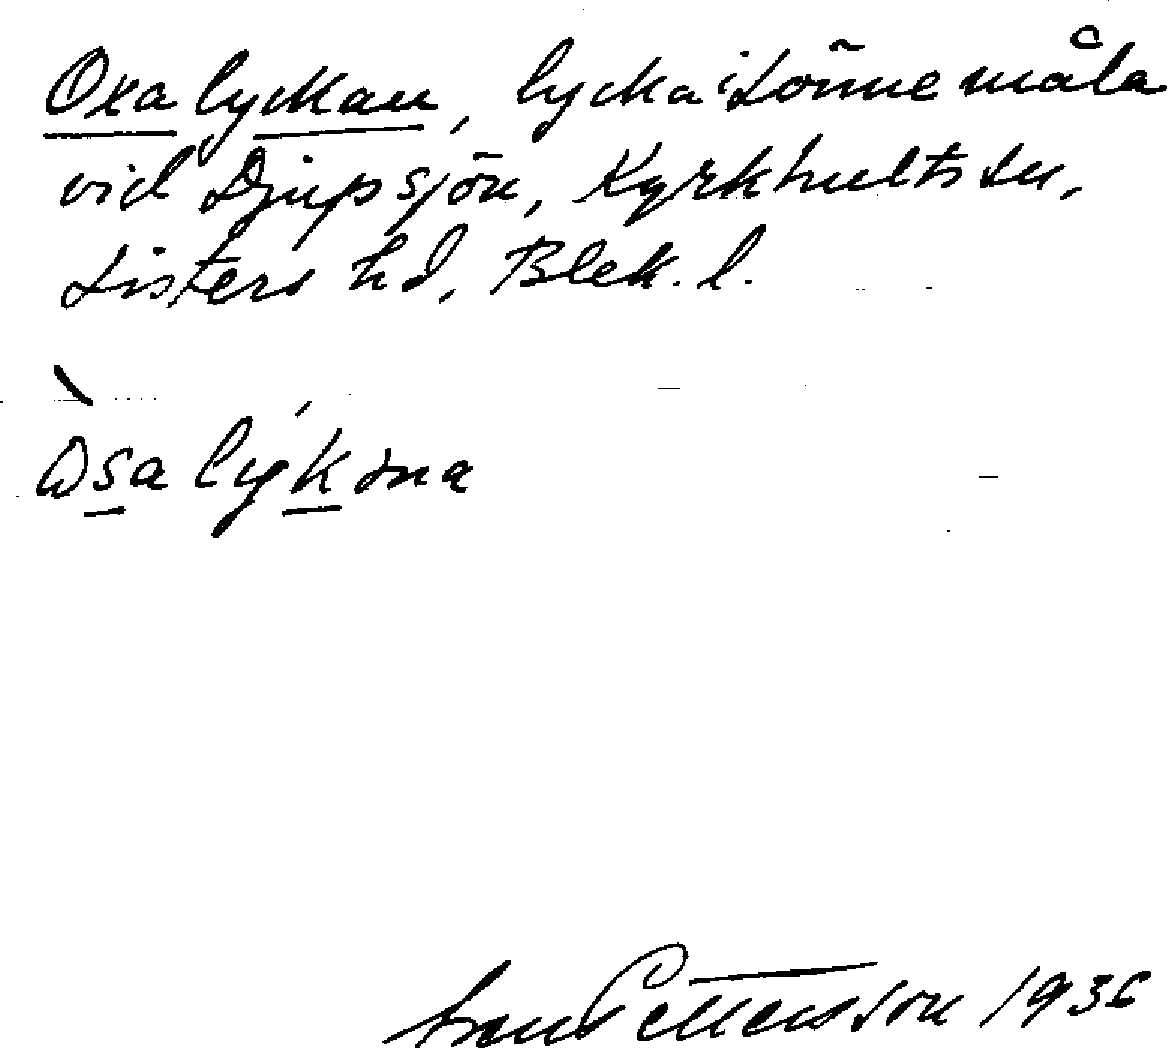 Oxalyckan, lycka i Lönnemåla
vid Djupsjön, Kyrkhults sn,
Listers hd, Blek. l.
ωsa lykəna
Pettersson 193